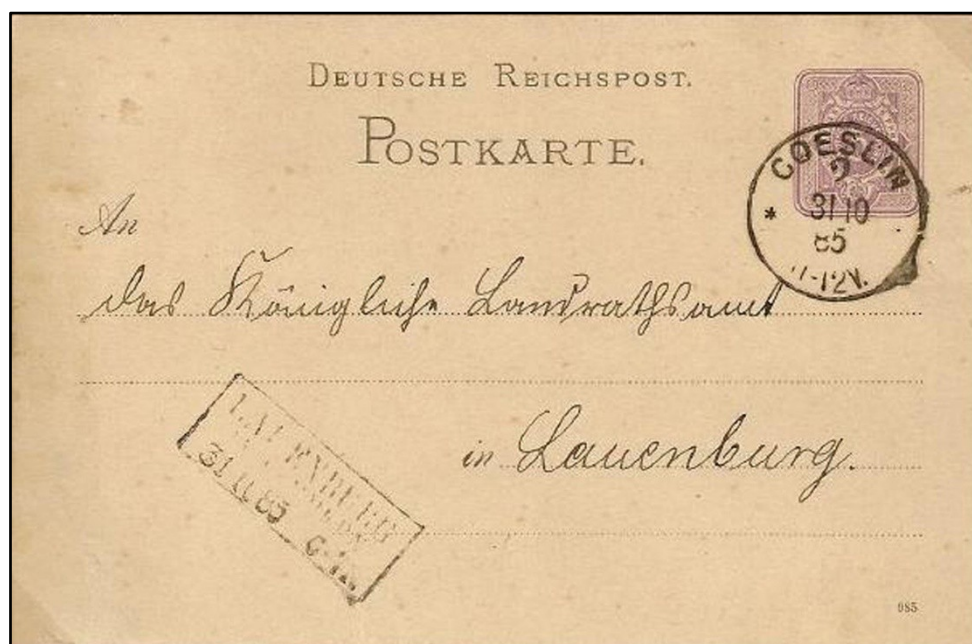 DEUTSCHE REICHSPOST.
POSTKARTE.
COESLIN
2
* 31 10
85
11-12V.
An
das Königliche Landrathsamt
in Lauenburg.
LAUENBURG
31 10 85
985